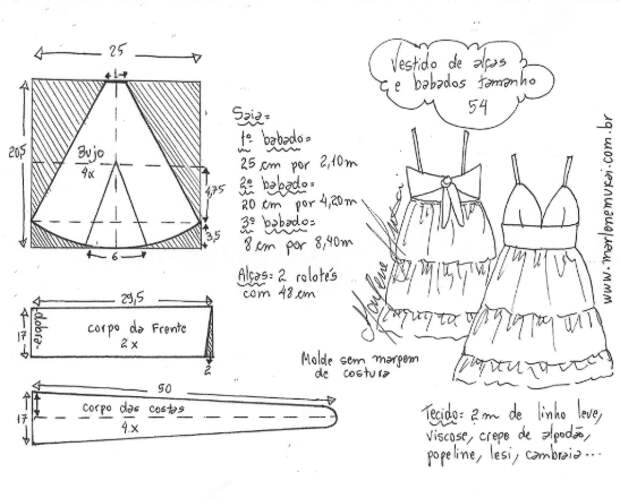 25
1
20,5
Bujo
4x
4,75
3,5
6
Saia=
1º babado=
25 cm por 2,10m
2º babado=
20 cm por 4,20m
3º babado=
8 cm por 8,40m
Alças: 2 rolotês
com 48 cm
Vestido de alças
e babados tamanho
54
www.marlenemukai.com.br
Marlene Mukai
29,5
17
dobra
corpo da Frente
2x
2
50
17
corpo das costas
4x
Molde sem margem
de costura
Tecido= 2m de linho leve,
viscose, crepe de algodão,
popeline, lesi, cambraia...